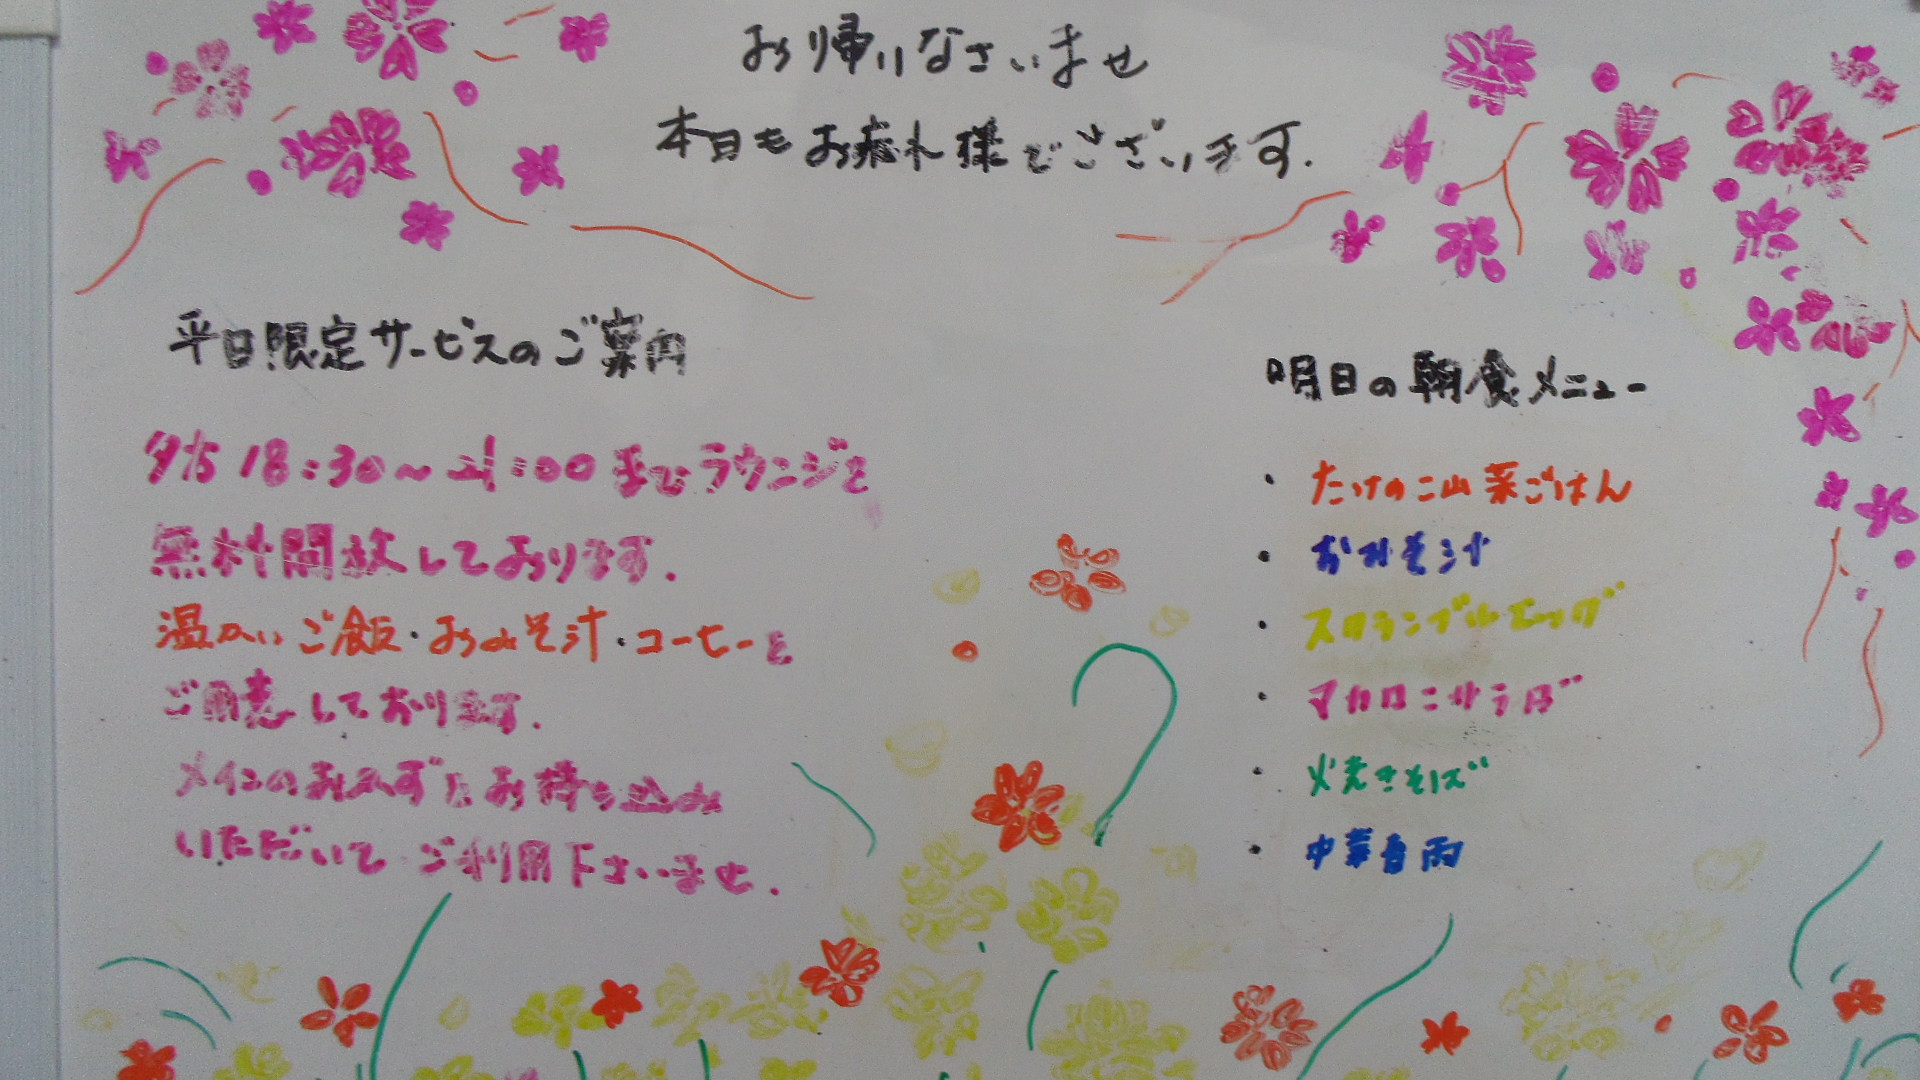 お帰りなさいませ
本日もお疲れ様でございます.
平日限定サービスのご案内
夕方18:30～21:00までラウンジを
無料開放しております.
温かいご飯・おみそ汁・コーヒーを
ご用意しております.
メインのおかずをお持ち込み
いただいてご利用下さいませ.
明日の朝食メニュー
・たけのこ山菜ごはん
・おみそ汁
・スクランブルエッグ
・マカロニサラダ
・焼きそば
・中華春雨